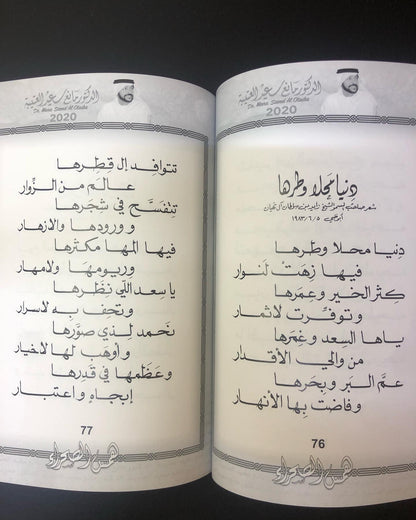 الدكتور مانع سعيد العتيبة
Dr. Mana Saeed Al Otaiba
2020
دنيا محلا وطرها
شعر صاحب السمو الشيخ زايد بن سلطان آل نهيان
أبوظبي ١٩٨٣/٦/٥
دنيا محلا وطرها
فيها زهت لنوار
كثر الخير وعمرها
وتوفرت لاثمار
ياها السعد وغمرها
من والي الأقدار
عم البر وبحرها
وفاضت بها الأنهار
76
همس الصحراء
الدكتور مانع سعيد العتيبة
Dr. Mana Saeed Al Otaiba
2020
تتوافد إل قطرها
عالم من الزوار
تتفسح في شجرها
وورودها والازهار
فيها المها مكثرها
وريومها ولامهار
يا سعد اللي نظرها
وتحف به لاسرار
نحمد لذي صورها
وأوهب لها لاخيار
وعظمها في قدرها
إبجاه واعتبار
77
همس الصحراء